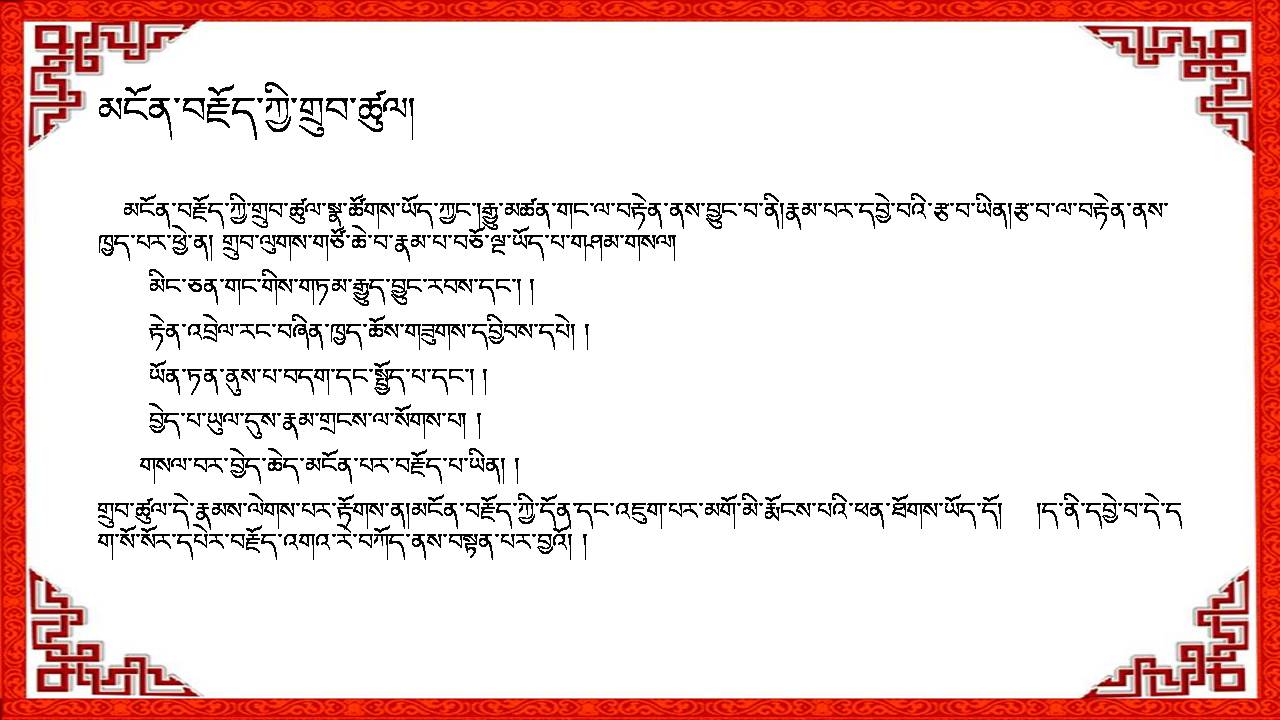 མངོན་བརྗོད་ཀྱི་གྲུབ་ཚུལ།
མངོན་བརྗོད་ཀྱི་གྲུབ་ཚུལ་སྣ་ཚོགས་ཡོད་ཀྱང་།རྒྱུ་མཚན་གང་ལ་བརྟེན་ནས་བྱུང་བ་ནི།རྣམ་པར་དབྱེ་བའི་རྩ་བ་ཡིན།རྩ་བ་ལ་བརྟེན་ནས་
ཁྱད་པར་ཕྱེ་ན། གྲུབ་ལུགས་གཙོ་ཆེ་བ་རྣམ་པ་བཅོ་ལྔ་ཡོད་པ་གཤམ་གསལ།
མིང་ཅན་གང་གིས་གཏམ་རྒྱུད་བྱུང་རབས་དང་། །
རྟེན་འབྲེལ་རང་བཞིན་ཁྱད་ཆོས་གཟུགས་དབྱིབས་དཔེ། །
ཡོན་ཏན་ནུས་པ་བདག་དང་སྤྱོད་པ་དང་། །
བྱེད་པ་ཡུལ་དུས་རྣམ་གྲངས་ལ་སོགས་པ། །
གསལ་བར་བྱེད་ཆེད་མངོན་པར་བརྗོད་པ་ཡིན། །
གྲུབ་ཚུལ་དེ་རྣམས་ལེགས་པར་རྟོགས་ན།མངོན་བརྗོད་ཀྱི་དོན་དང་འཇུག་པར་མགོ་མི་རྨོངས་པའི་ཕན་ཐོགས་ཡོད་དོ། །ད་ནི་དབྱེ་བ་དེ་ད
ག་སོ་སོར་དཔེར་བརྗོད་འགའ་རེ་བཀོད་ནས་བསྟན་པར་བྱའོ། །